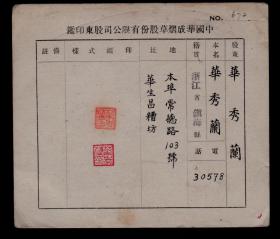 NO. 672
中國華成烟草股份有限公司股東印鑑
股戶 華秀蘭
本名 華秀蘭
籍貫 浙江省鎮海縣
電話 30578
住址 本埠常德路103號
華生昌糟坊
印鑑
式樣
備註